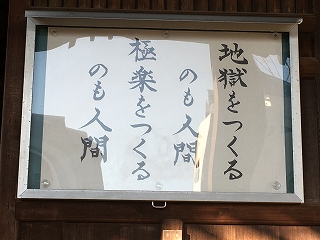 地獄をつくる
のも人間
極楽をつくる
のも人間